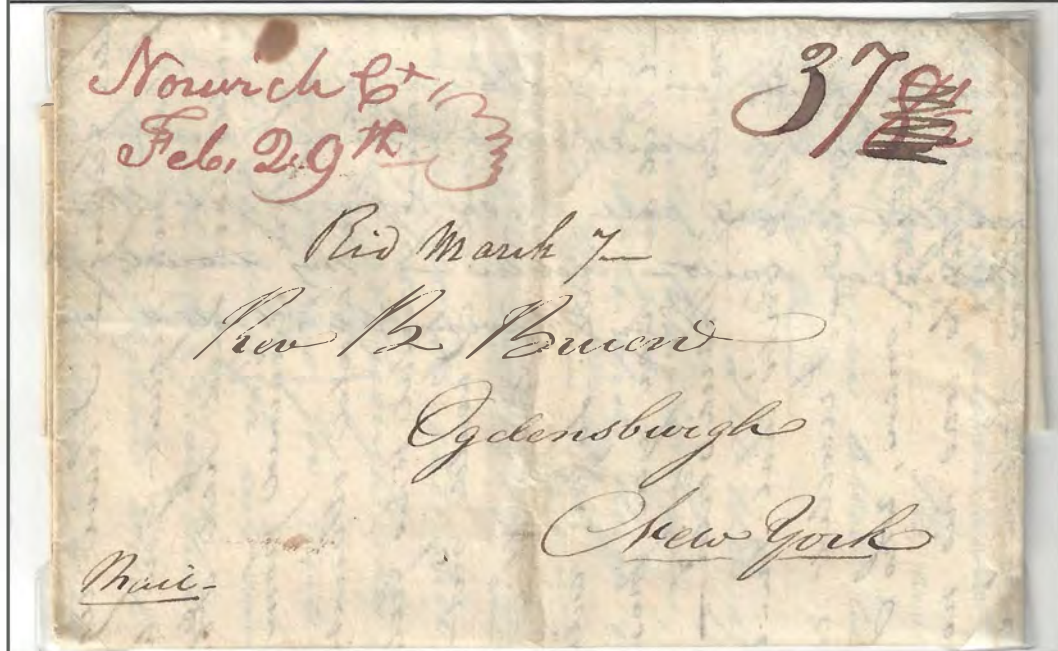 Norwich Ct
Feb. 29th
37
Rid March 7
Rev B
Ogdensburgh
New York
Mail